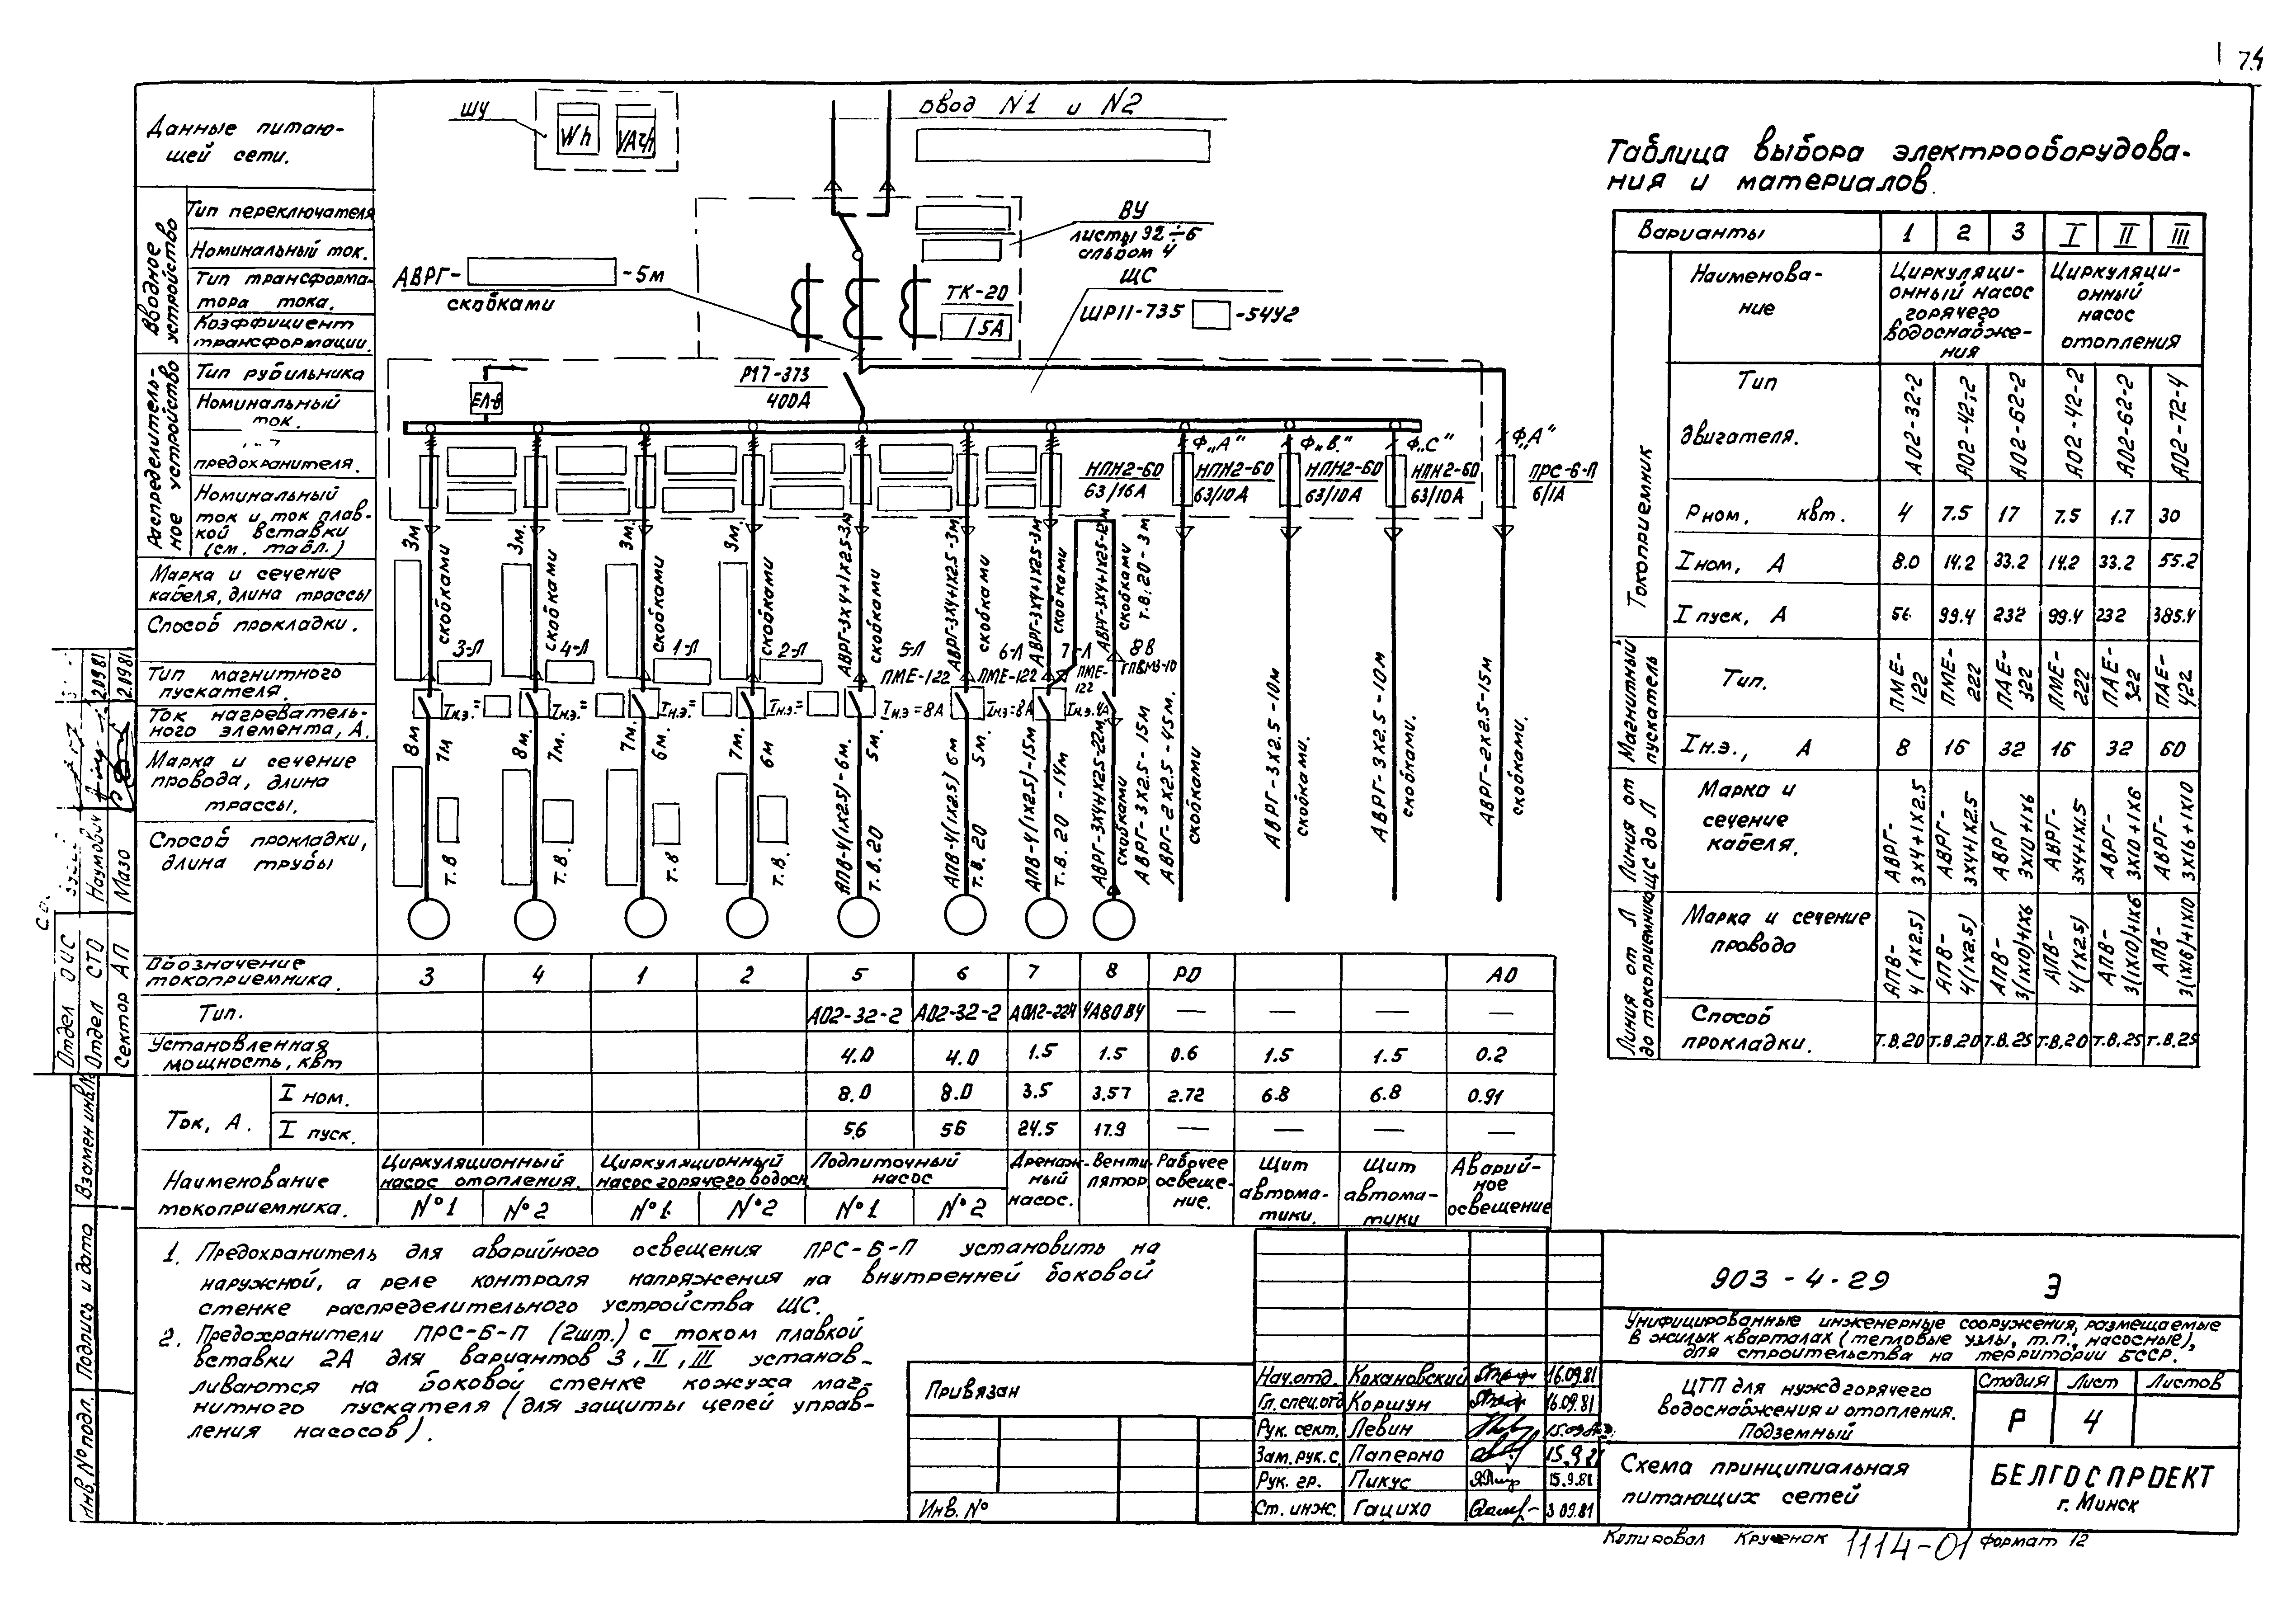 74
Данные питаю-
щей сети.
Вводное устройство
Тип переключателя
Номинальный ток.
Тип трансформа-
тора тока.
Коэффициент
трансформации.
Распределитель-
ное устройство
Тип рубильника
Номинальный
ток.
предохранителя.
Номинальный
ток и ток плав-
кой вставки
(см. табл.)
Марка и сечение
кабеля, длина трассы
Способ прокладки.
Тип магнитного
пускателя.
Ток нагреватель-
ного элемента, А.
Марка и сечение
провода, длина
трассы.
Способ прокладки,
длина трубы
ШУ
Wh
VАчh
Ввод N1 и N2
ВУ
листы 92÷6
альбом 4
АВРГ- -5м
скобками
ТК-20
/5А
ЩС
ШР11-735 -54У2
Р17-373
400А
ЕЛ-8
Ф„А" Ф„В" Ф„С" Ф„А"
НПН2-60
63/16А
НПН2-60
63/10А
НПН2-60
63/10А
НПН2-60
63/10А
ПРС-6-П
6/1А
3м скобками
3м. скобками
3м. скобками
3м. скобками
АВРГ-3х4+1х2.5-3м скобками
АВРГ-3х4+1х2.5-3м. скобками
АВРГ-3х4+1х2.5-3м скобками
скобками
т.в.20-3м
3-Л
4-Л
1-Л
2-Л
5-Л
ПМЕ-122
6-Л
ПМЕ-122
7-Л
ПМЕ-
122
8В
Iн.э.=
Iн.э.=
Iн.э.=
Iн.э.=
Iн.э=8А
Iн.э=8А
Iн.э.4А
8м 7м
8м. 7м.
7м. 6м.
7м. 6м
т.в
т.в.
т.в
т.в.
АПВ-4(1х2.5)-6м. 5м.
т.в.20
АПВ-4(1х2.5) 6м 5м.
т.в.20
АПВ-4(1х2.5)-15м
т.в.20 -14м
АВРГ-3х4+1х2.5-22м
скобками
АВРГ-3х2.5-15м
АВРГ-2х2.5-45м.
скобками
АВРГ-3х2.5-10м
скобками.
АВРГ-3х2.5-10м
скобками.
АВРГ-2х2.5-15м
скобками.
Обозначение
токоприемника. 3 4 1 2 5 6 7 8 РО АО
Тип. АО2-32-2 АО2-32-2 АОЛ2-224 4А80В4 — — — —
Установленная
мощность, квт 4.0 4.0 1.5 1.5 0.6 1.5 1.5 0.2
Ток, А. I ном. 8.0 8.0 3.5 3.57 2.72 6.8 6.8 0.91
I пуск. 56 56 24.5 17.9 — — — —
Наименование
токоприемника.
Циркуляционный
насос отопления.
№1 №2
Циркуляционный
насос горячего водосн
№1 №2
Подпиточный
насос
№1 №2
Дренаж-
ный
насос.
Венти-
лятор
Рабочее
освеще-
ние.
Щит
автома-
тики.
Щит
автома-
тики
Аварий-
ное
освещение
1. Предохранитель для аварийного освещения ПРС-6-П установить на
наружной, а реле контроля напряжения на внутренней боковой
стенке распределительного устройства ЩС.
2. Предохранители ПРС-6-П (2шт.) с током плавкой
вставки 2А для вариантов 3, II, III устанав-
ливаются на боковой стенке кожуха маг-
нитного пускателя (для защиты цепей управ-
ления насосов).
Таблица выбора электрооборудова-
ния и материалов.
Варианты 1 2 3 I II III
Токоприемник
Наименова-
ние
Циркуляци-
онный насос
горячего
водоснабже-
ния
Циркуляци-
онный
насос
отопления
Тип
двигателя.
АО2-32-2 АО2-42-2 АО2-62-2 АО2-42-2 АО2-62-2 АО2-72-4
Рном, квт. 4 7.5 17 7.5 1.7 30
Iном, А 8.0 14.2 33.2 14.2 33.2 55.2
I пуск, А 56 99.4 232 99.4 232 385.4
Магнитный
пускатель
Тип.
ПМЕ-
122
ПМЕ-
222
ПАЕ-
322
ПМЕ-
222
ПАЕ-
322
ПАЕ-
422
Iн.э., А 8 16 32 16 32 60
Линия от
ЩС до Л
Марка и
сечение
кабеля.
АВРГ-
3х4+1х2.5
АВРГ-
3х4+1х2.5
АВРГ
3х10+1х6
АВРГ-
3х4+1х1.5
АВРГ-
3х10+1х6
АВРГ-
3х16+1х10
Линия от Л
до токоприемника
Марка и сечение
провода
АПВ-
4(1х2.5)
АПВ-
4(1х2.5)
АПВ-
3(1х10)+1х6
АПВ-
4(1х2.5)
АПВ-
3(1х10)+1х6
АПВ-
3(1х16)+1х10
Способ
прокладки.
т.в.20 т.в.20 т.в.25 т.в.20 т.в.25 т.в.25
Привязан
Инв. №
Нач.отд. Кохановский 16.09.81
Гл. спец.отд Коршун 16.09.81
Рук. сект. Левин
Зам. рук.с. Паперно 15.9.81
Рук. гр. Пикус 15.9.81
Ст. инж. Гацихо 3 09.81
903-4-29 Э
Унифицированные инженерные сооружения, размещаемые
в жилых кварталах (тепловые узлы, т.п., насосные),
для строительства на территории БССР.
ЦТП для нужд горячего
водоснабжения и отопления.
Подземный
Стадия Лист Листов
Р 4
Схема принципиальная
питающих сетей
БЕЛГОСПРОЕКТ
г. Минск
Копировал Крученок 1114-01 формат 12
Отдел ОИС
Отдел СТО Наумович 2.09.81
Сектор АП Мазо 2.09.81
Взамен инв.№
Подпись и дата
Инв. № подл.